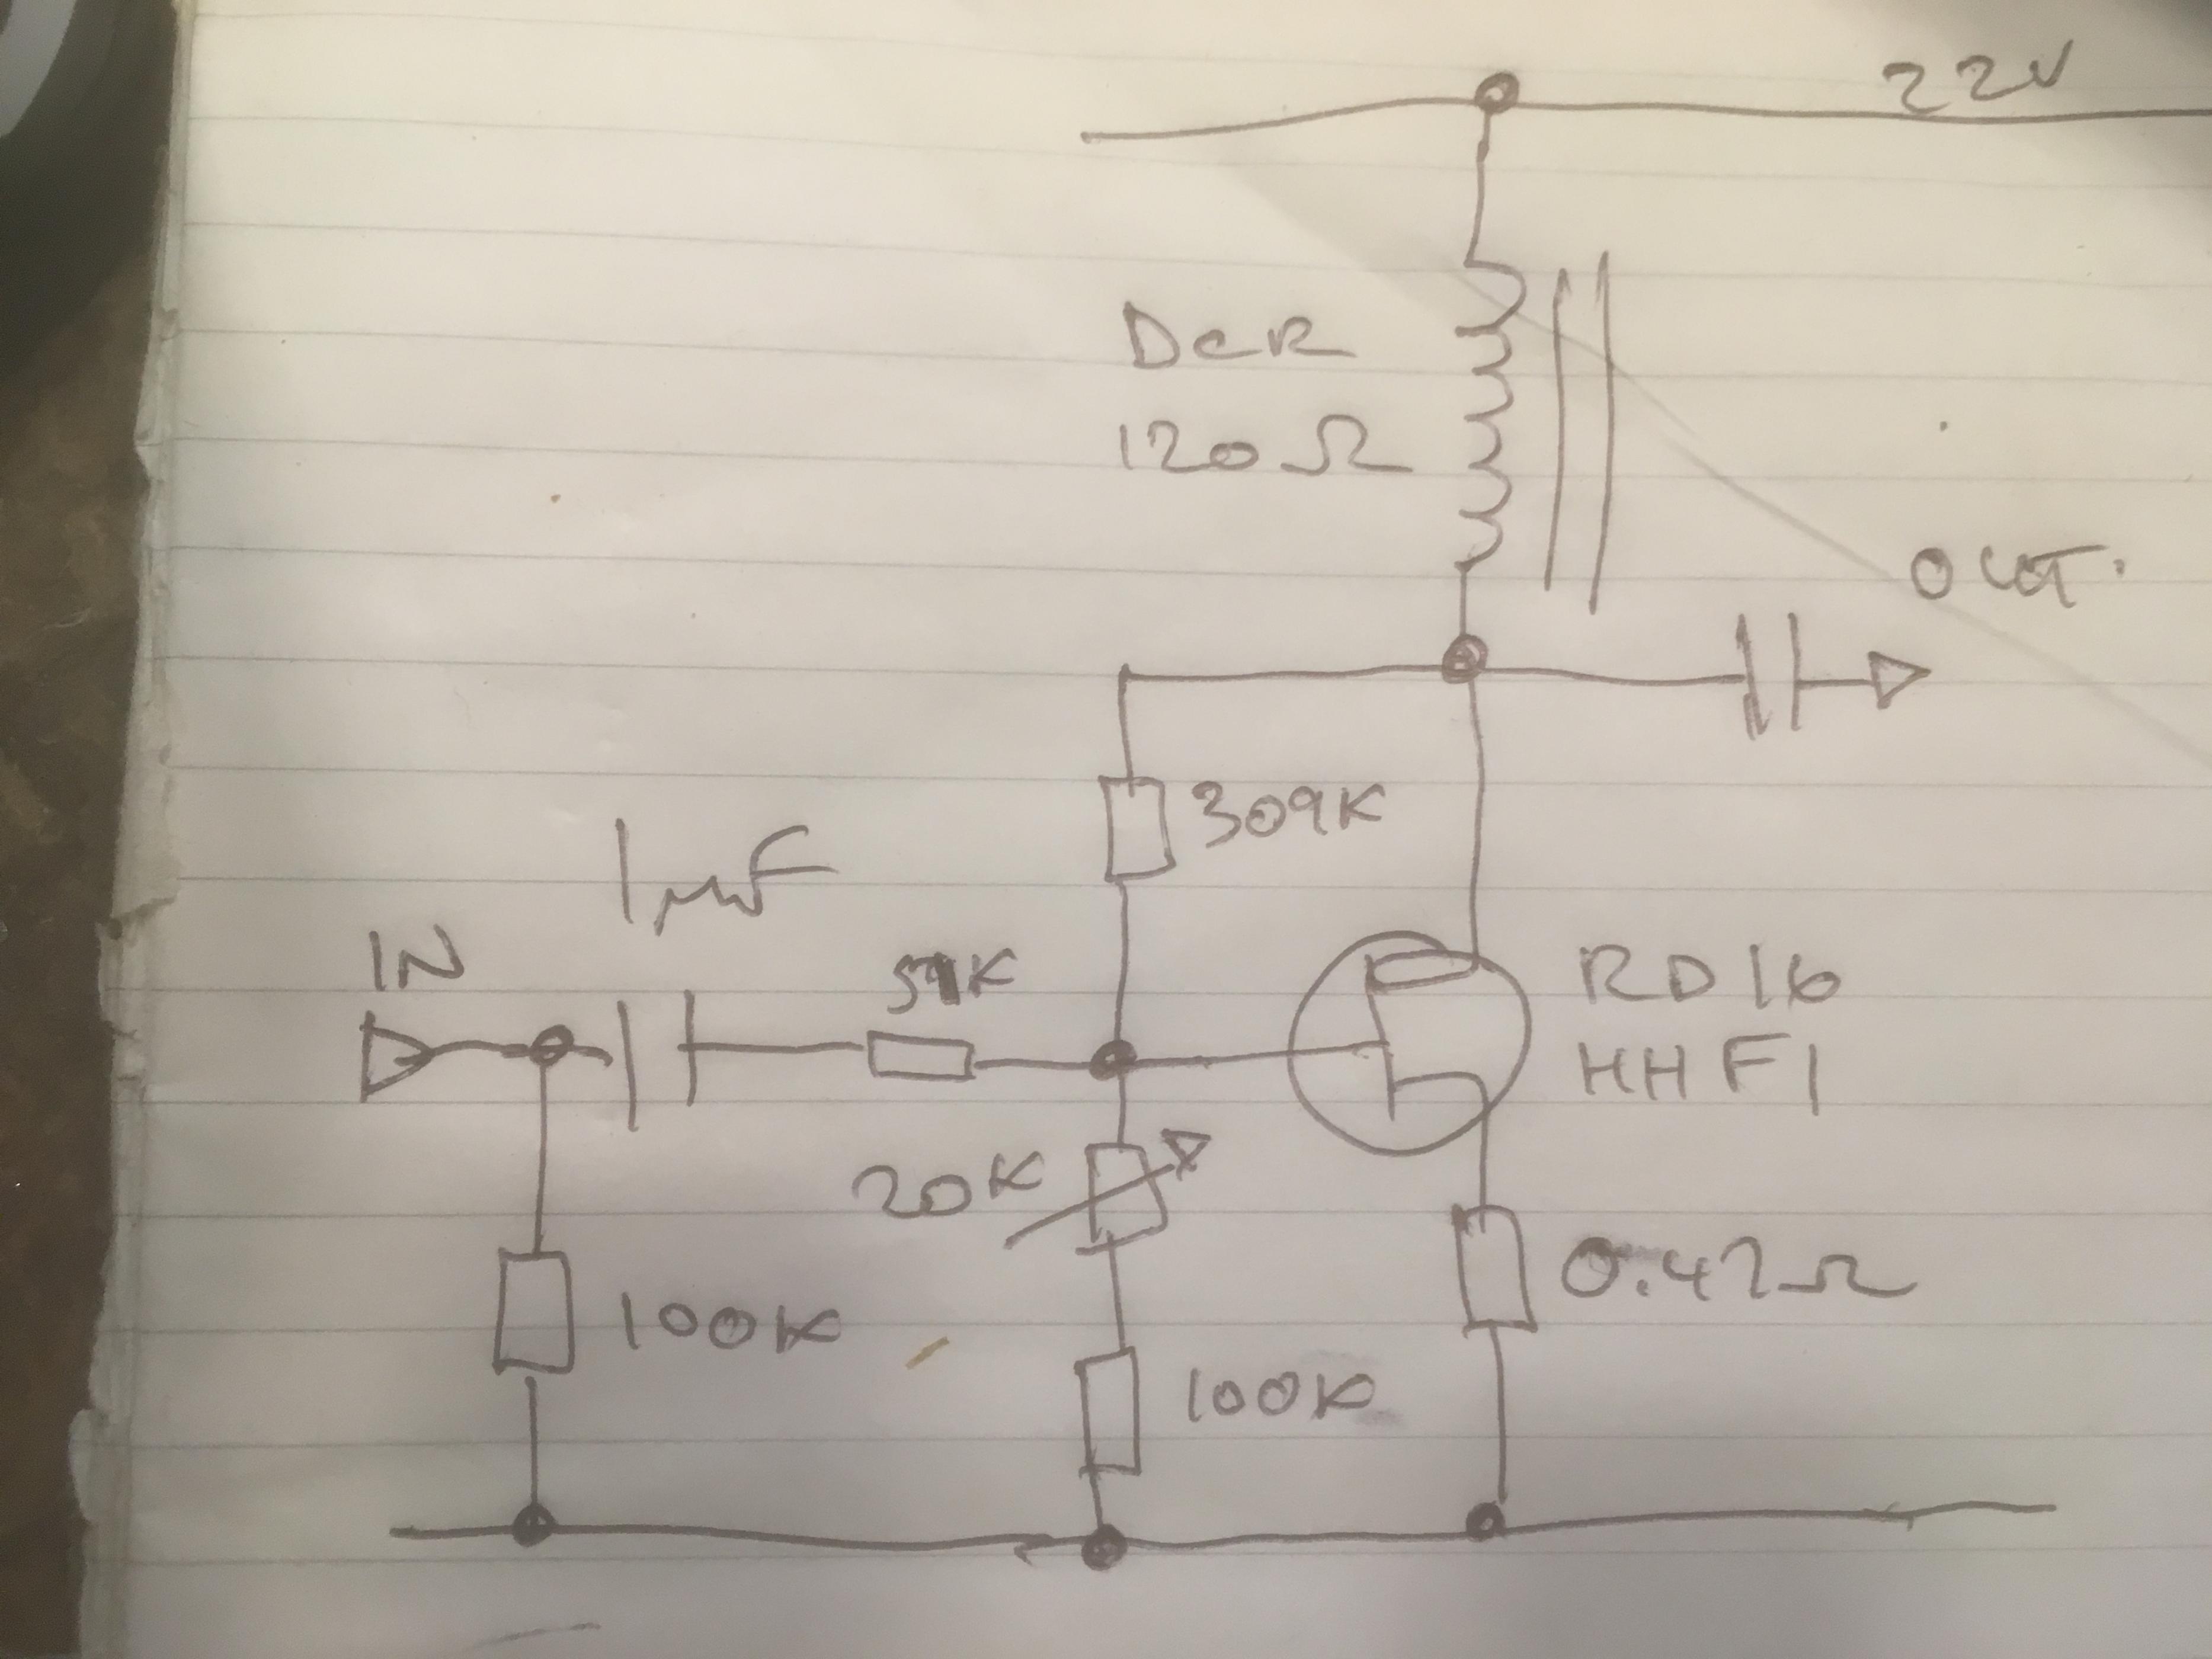 22V
DCR
120Ω
OUT.
309K
1µF
IN
RD16
HHF1
20K
0.47Ω
100K
100K